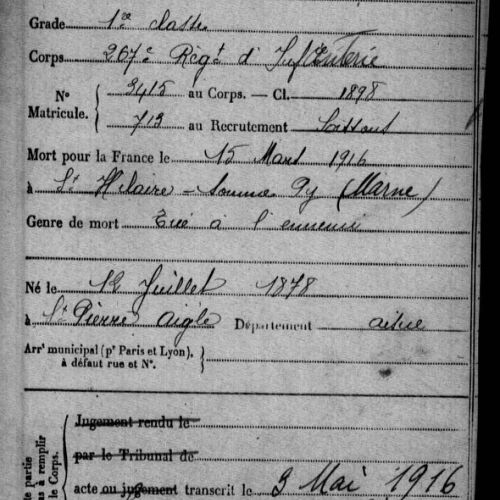 Grade 1re classe
Corps 267e Régt d'Infanterie
No Matricule. 3415 au Corps. — Cl. 1898
713 au Recrutement Soissons
Mort pour la France le 15 Mars 1916
à St Hilaire - Somme Py (Marne)
Genre de mort Tué à l'ennemi
Né le 12 Juillet 1878
à St Pierre Aigle Département aisne
Arrt municipal (pr Paris et Lyon),
à défaut rue et No.
Jugement rendu le
par le Tribunal de
acte ou jugement transcrit le 3 Mai 1916
te partie
as à remplir
le Corps.